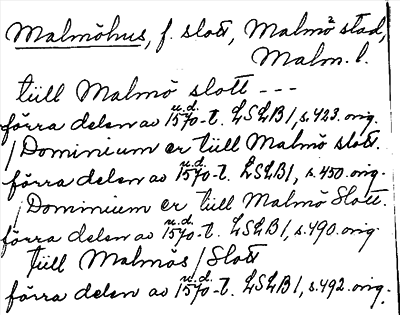 Malmöhus, f. slott, Malmö stad,
Malm. l.
tüll Malmö slott ---
förra delen av u.d. 1570-t. LSLB1, s. 423. orig.
/Dominium er tüll Malmö slott.
förra delen av u.d. 1570-t. LSLB1, s. 450. orig.
/Dominium er tüll Malmö Slott.
förra delen av u.d. 1570-t. LSLB1, s. 490. orig.
tüll Malmös / Slott
förra delen av u.d. 1570-t. LSLB1, s. 492. orig.